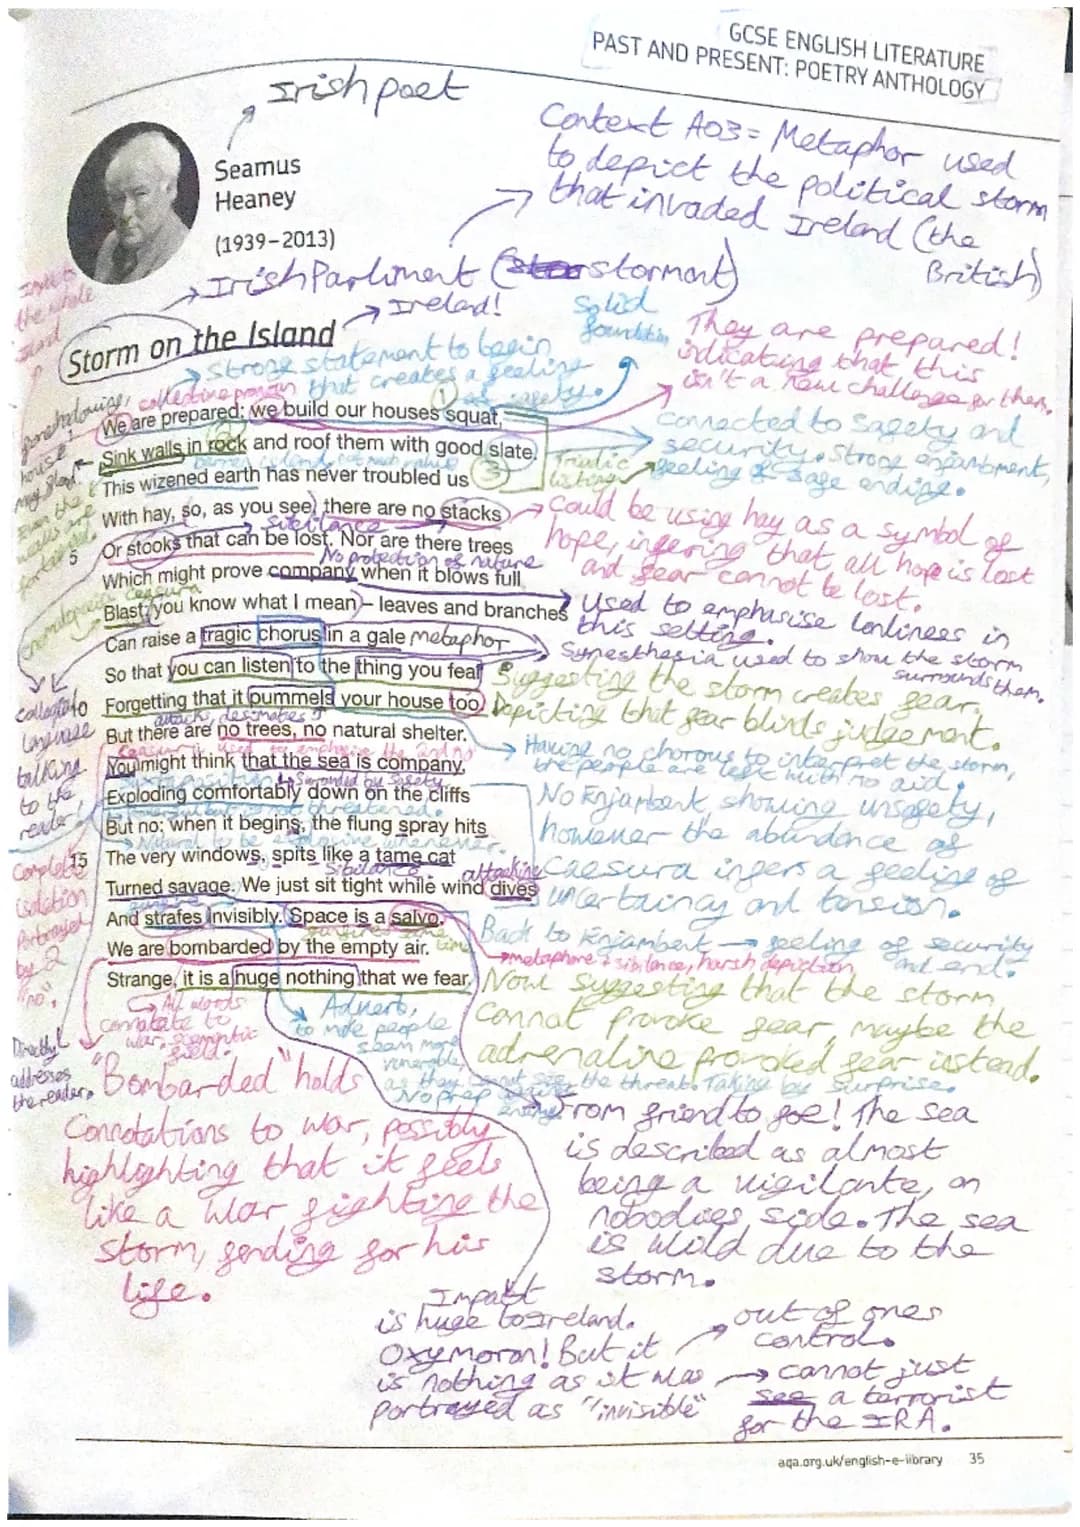 GCSE ENGLISH LITERATURE
PAST AND PRESENT: POETRY ANTHOLOGY
Irish poet
Seamus
Heaney
(1939–2013)
Context A03 = Metaphor used
to depict the political storm
that invaded Ireland (the
British)
Irish Parliment (stormont)
Ireland!
the whole
Storm on the Island
Solid
foundation
They are prepared!
indicating that this
isn't a new challenge for them.
Strong statement to begin
that creates a feeling
of safety.
collective pronoun
1
We are prepared: we build our houses squat,
Sink walls in rock and roof them with good slate.
This wizened earth has never troubled us
With hay, so, as you see, there are no stacks
5 Or stooks that can be lost. Nor are there trees
Which might prove company when it blows full
Blast: you know what I mean – leaves and branches
Can raise a tragic chorus in a gale
So that you can listen to the thing you fear
10 Forgetting that it pummels your house too.
But there are no trees, no natural shelter.
You might think that the sea is company,
Exploding comfortably down on the cliffs
But no: when it begins, the flung spray hits
15 The very windows, spits like a tame cat
Turned savage. We just sit tight while wind dives
And strafes invisibly. Space is a salvo.
We are bombarded by the empty air.
Strange, it is a huge nothing that we fear.
3
Triadic
listing
connected to safety and
security. Strong enjambment,
feeling of safe ending.
sibilance
could be using hay as a symbol of
hope, infering that all hope is lost
and fear cannot be lost.
No protection of nature
caesura
Used to emphasise lonliness in
this setting.
metaphor
Synesthesia used to show the storm
surrounds them.
Suggesting the storm creates fear.
Depicting that fear blinds judgement.
attacks, desimates
Having no chorous to interpret the storm,
the people are left with no aid.
Surrounded by safety
No Enjambent showing unsafety,
however the abundance of
Caesura infers a feeling of
uncertainty and tension.
Sibilance
attacking
Back to Enjambent → feeling of security
and end.
metaphore + sibilance, harsh depiction
Now suggesting that the storm
cannot provoke fear, maybe the
adrenaline provoked fear instead.
language
talking
to the
reader!
Complete
isolation
Portrayed
by 2
"no".
Directly
addresses
the reader.
All words
connotate to
war, semantic
field.
Adverb,
to make people
seem more
venerable,
as they cannot see the threat. Taking by surprise.
No prep
"Bombarded" holds
Connotations to war, possibly
highlighting that it feels
like a war fighting the
storm, fending for his
life.
From friend to foe! The sea
is described as almost
being a vigilante, on
nobodies side. The sea
is wild due to the
storm.
Impact
is huge to Ireland.
Oxymoron! But it
is nothing as it was
portrayed as "invisible"
out of ones
control.
cannot just
see a terrorist
for the IRA.
aqa.org.uk/english-e-library 35